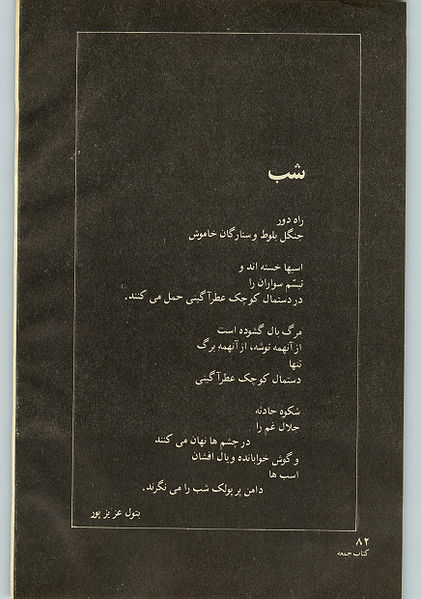 شب
راه دور
جنگل بلوط و ستارگان خاموش
اسبها خسته اند و
تبسّم سواران را
در دستمال کوچک عطرآگینی حمل می کنند.
مرگ بال گشوده است
از آنهمه توشه، از آنهمه برگ
تنها
دستمال کوچک عطرآگینی
شکوه حادثه
جلال غم را
در چشم ها نهان می کنند
و گوش خوابانده و یال افشان
اسب ها
دامن پر پولک شب را می نگرند.
بتول عزیز پور
۸۲
کتاب جمعه